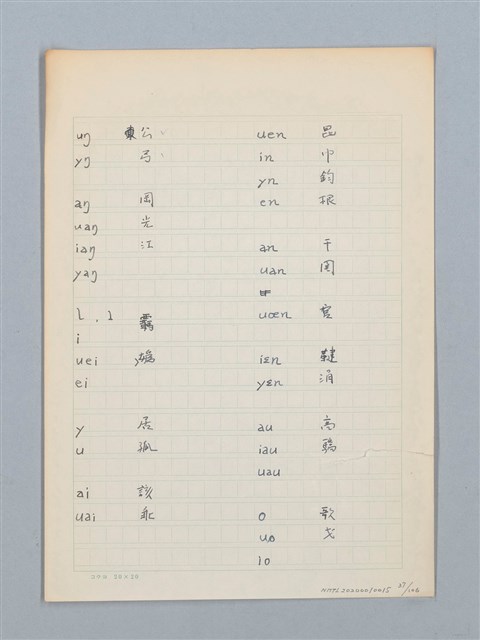 uŋ 東公、
yŋ 弓、
aŋ 岡
uaŋ 光
iaŋ 江
yaŋ
ʅ . ɿ 羈
i
uei
ei
y 居
u 孤
ai 該
uai 乖
uen 昆
in 巾
yn 鈞
en 根
an 干
uan
uœn 官
iɛn 鞬
yɛn 涓
au 高
iau 驕
uau
o 歌
uo 戈
io
20 X 20
NMTL20200010015 27/106